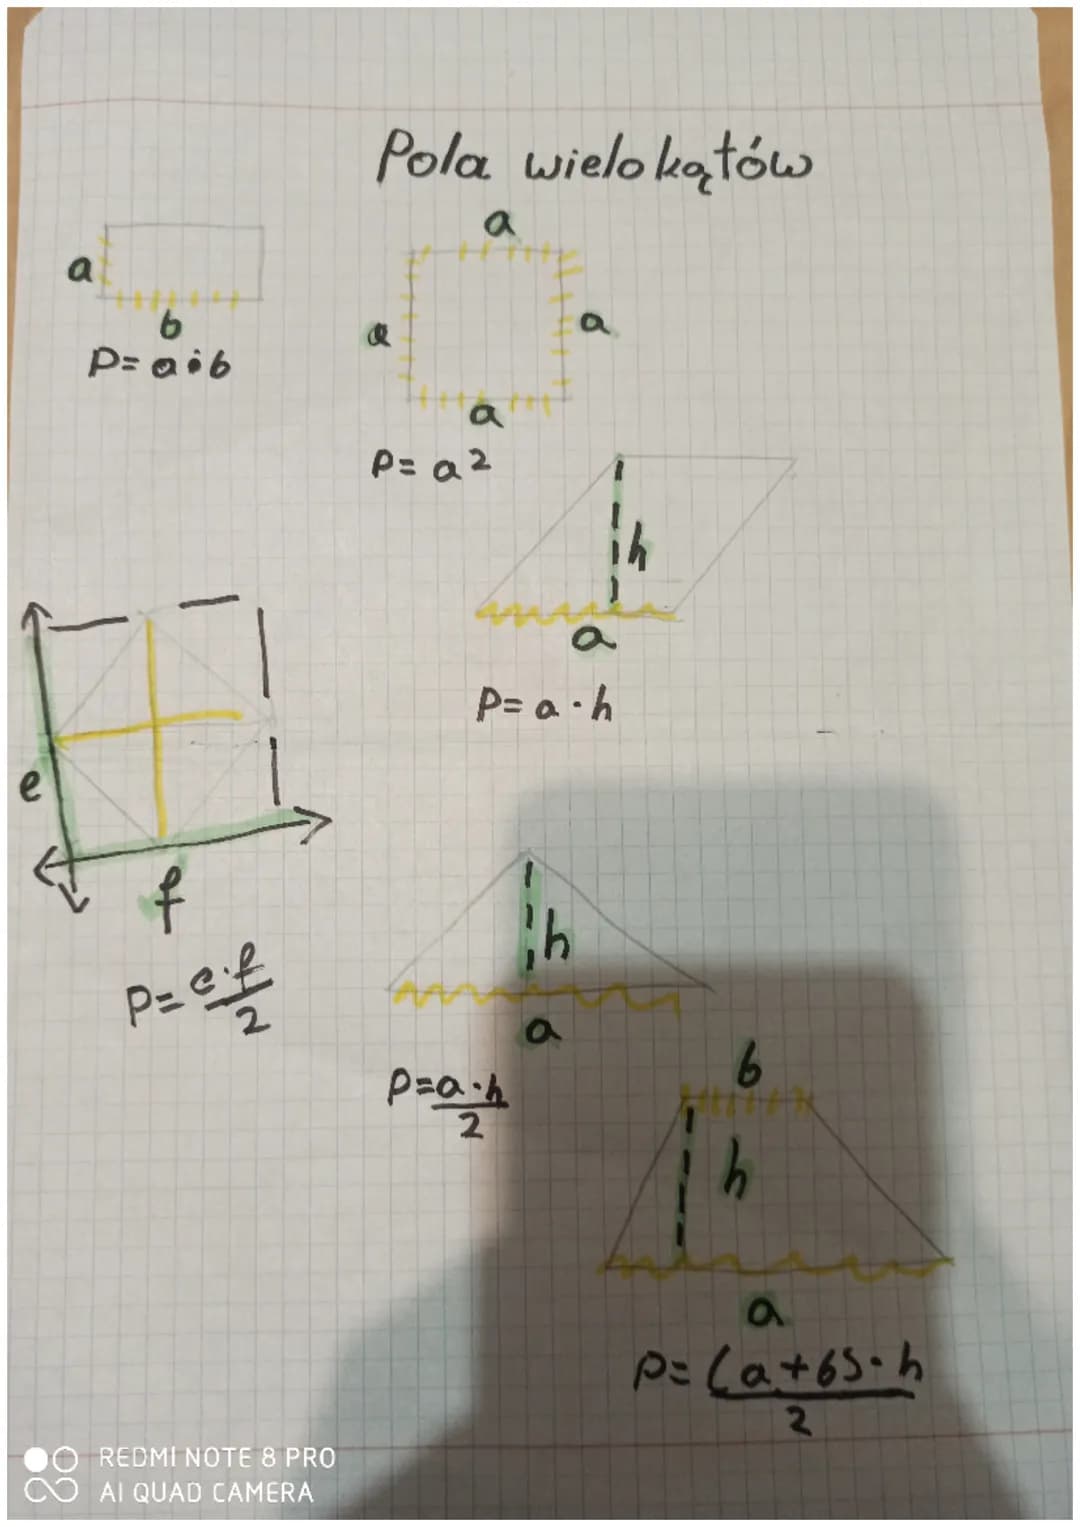 Pola wielokątów
a
b
P= a·b
a
a
a
a
P= a²
h
a
P= a·h
e
f
P= e·f/2
h
a
P= a·h/2
b
h
a
P= (a+b)·h/2
REDMI NOTE 8 PRO
AI QUAD CAMERA